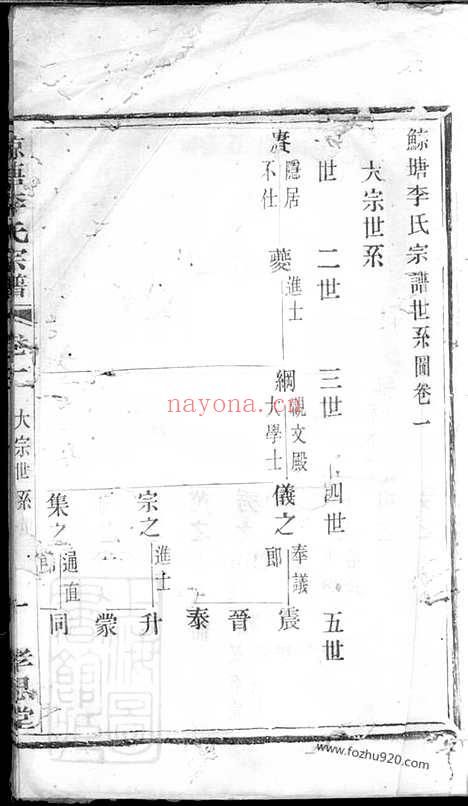 鯨塘李氏宗譜世系圖卷一
大宗世系
世 二世 三世 四世 五世
賡 隱居不仕
夔 進士
綱 觀文殿大學士
儀之 奉議郎
震
晉
泰
宗之 進士
升
蒙
集之 通直
同
鯨塘李氏宗譜
大宗世系
一
孝思堂
nayona.cn
www.fozhu920.com